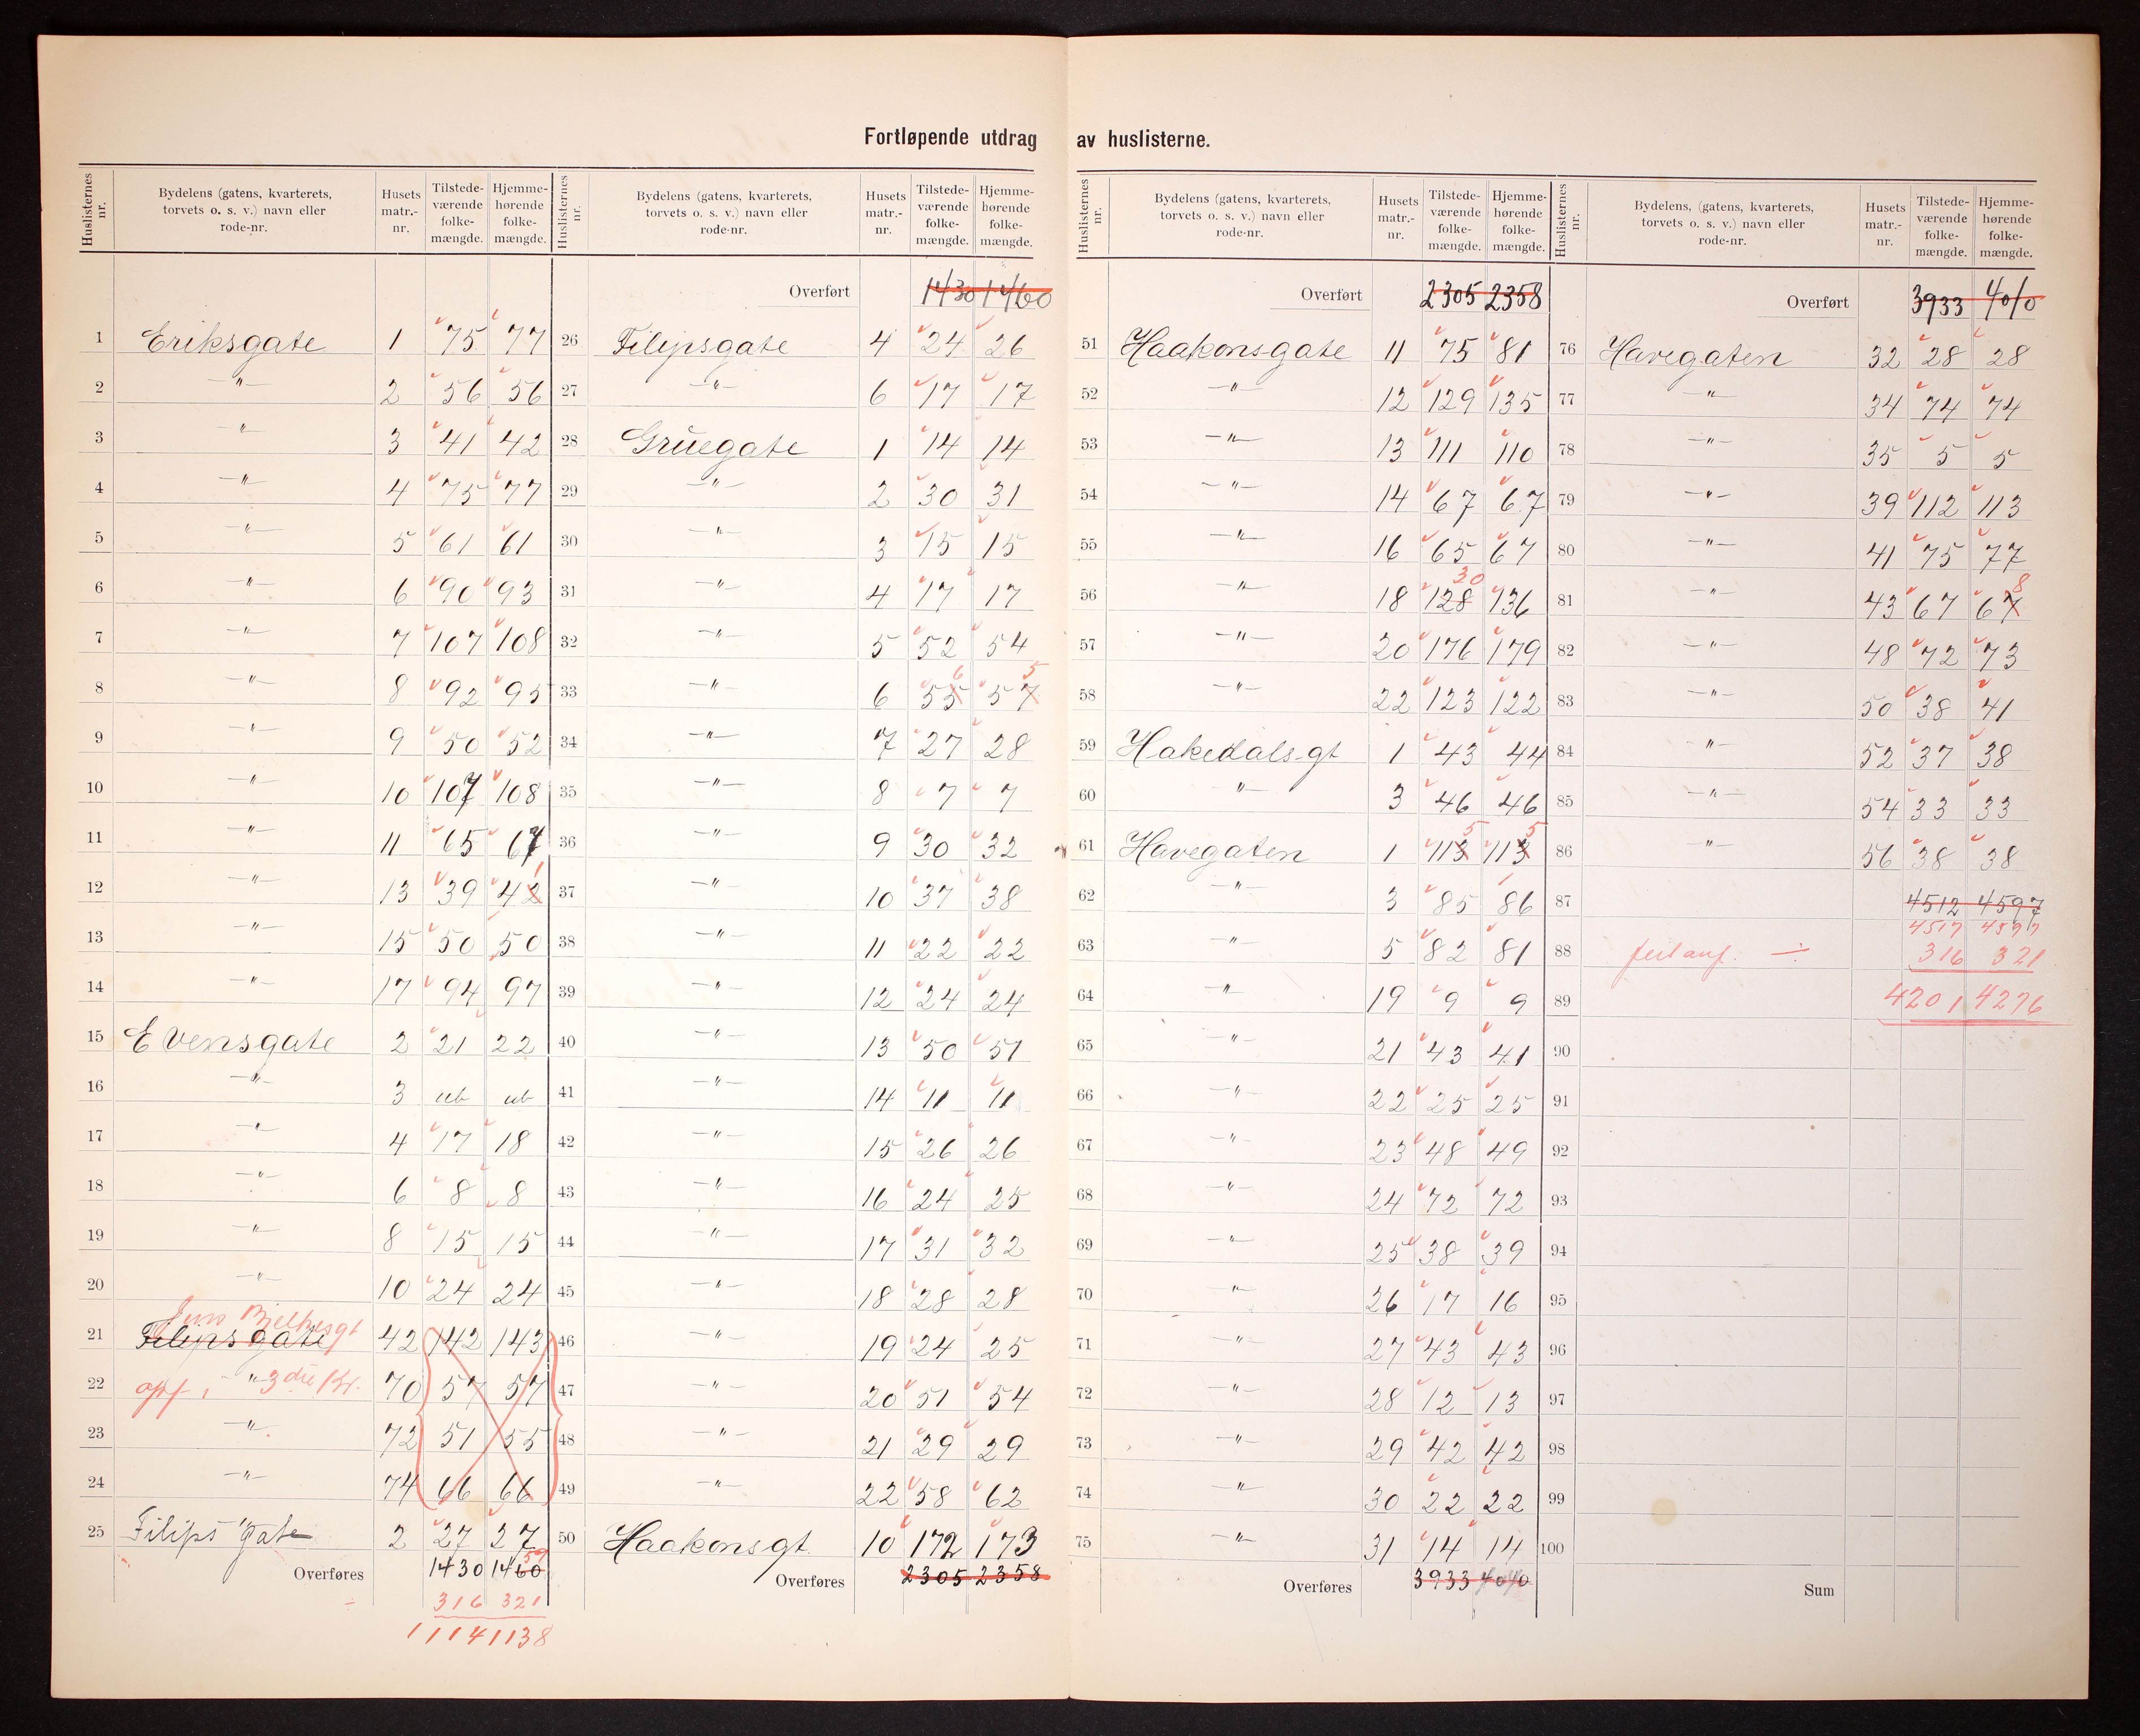 Fortløpende utdrag av huslisterne.
Huslisternes nr. | Bydelens (gatens, kvarterets, torvets o. s. v.) navn eller rode-nr. | Husets matr.-nr. | Tilstede-værende folke-mængde. | Hjemme-hørende folke-mængde.
1 Eriksgate 1 75 77
2 —"— 2 56 56
3 —"— 3 41 42
4 —"— 4 75 77
5 —"— 5 61 61
6 —"— 6 90 93
7 —"— 7 107 108
8 —"— 8 92 95
9 —"— 9 50 52
10 —"— 10 107 108
11 —"— 11 65 67
12 —"— 13 39 42 1
13 —"— 15 50 50
14 —"— 17 94 97
15 Evensgate 2 21 22
16 —"— 3 ub ub
17 —"— 4 17 18
18 —"— 6 8 8
19 —"— 8 15 15
20 —"— 10 24 24
Jens Bjelkesgt
21 Filipsgate 42 142 143
22 opf. i —"— 3die kr. 70 57 57
23 —"— 72 51 55
24 —"— 74 66 66
25 Filipsgate 2 27 27
Overføres 1430 1460 59
÷ 316 321
1114 1138
Huslisternes nr. | Bydelens (gatens, kvarterets, torvets o. s. v.) navn eller rode-nr. | Husets matr.-nr. | Tilstede-værende folke-mængde. | Hjemme-hørende folke-mængde.
Overført 1430 1460
26 Filipsgate 4 24 26
27 —"— 6 17 17
28 Grüegate 1 14 14
29 —"— 2 30 31
30 —"— 3 15 15
31 —"— 4 17 17
32 —"— 5 52 54
33 —"— 6 55 6 57 5
34 —"— 7 27 28
35 —"— 8 7 7
36 —"— 9 30 32
37 —"— 10 37 38
38 —"— 11 22 22
39 —"— 12 24 24
40 —"— 13 50 51
41 —"— 14 11 11
42 —"— 15 26 26
43 —"— 16 24 25
44 —"— 17 31 32
45 —"— 18 28 28
46 —"— 19 24 25
47 —"— 20 51 54
48 —"— 21 29 29
49 —"— 22 58 62
50 Haakonsgt. 10 172 173
Overføres 2305 2358
Huslisternes nr. | Bydelens (gatens, kvarterets, torvets o. s. v.) navn eller rode-nr. | Husets matr.-nr. | Tilstede-værende folke-mængde. | Hjemme-hørende folke-mængde.
Overført 2305 2358
51 Haakonsgate 11 75 81
52 —"— 12 129 135
53 —"— 13 111 110
54 —"— 14 67 67
55 —"— 16 65 67
56 —"— 18 128 30 136
57 —"— 20 176 179
58 —"— 22 123 122
59 Hakedals-gt 1 43 44
60 —"— 3 46 46
61 Havegaten 1 113 5 113 5
62 —"— 3 85 86
63 —"— 5 82 81
64 —"— 19 9 9
65 —"— 21 43 41
66 —"— 22 25 25
67 —"— 23 48 49
68 —"— 24 72 72
69 —"— 25 38 39
70 —"— 26 17 16
71 —"— 27 43 43
72 —"— 28 12 13
73 —"— 29 42 42
74 —"— 30 22 22
75 —"— 31 14 14
Overføres 3933 4010
Huslisternes nr. | Bydelens, (gatens, kvarterets, torvets o. s. v.) navn eller rode-nr. | Husets matr.-nr. | Tilstede-værende folke-mængde. | Hjemme-hørende folke-mængde.
Overført 3933 4010
76 Havegaten 32 28 28
77 —"— 34 74 74
78 —"— 35 5 5
79 —"— 39 112 113
80 —"— 41 75 77
81 —"— 43 67 67 8
82 —"— 48 72 73
83 —"— 50 38 41
84 —"— 52 37 38
85 —"— 54 33 33
86 —"— 56 38 38
87 4512 4597
4517 4597
88 feil anf. ÷ 316 321
89 4201 4276
90
91
92
93
94
95
96
97
98
99
100
Sum